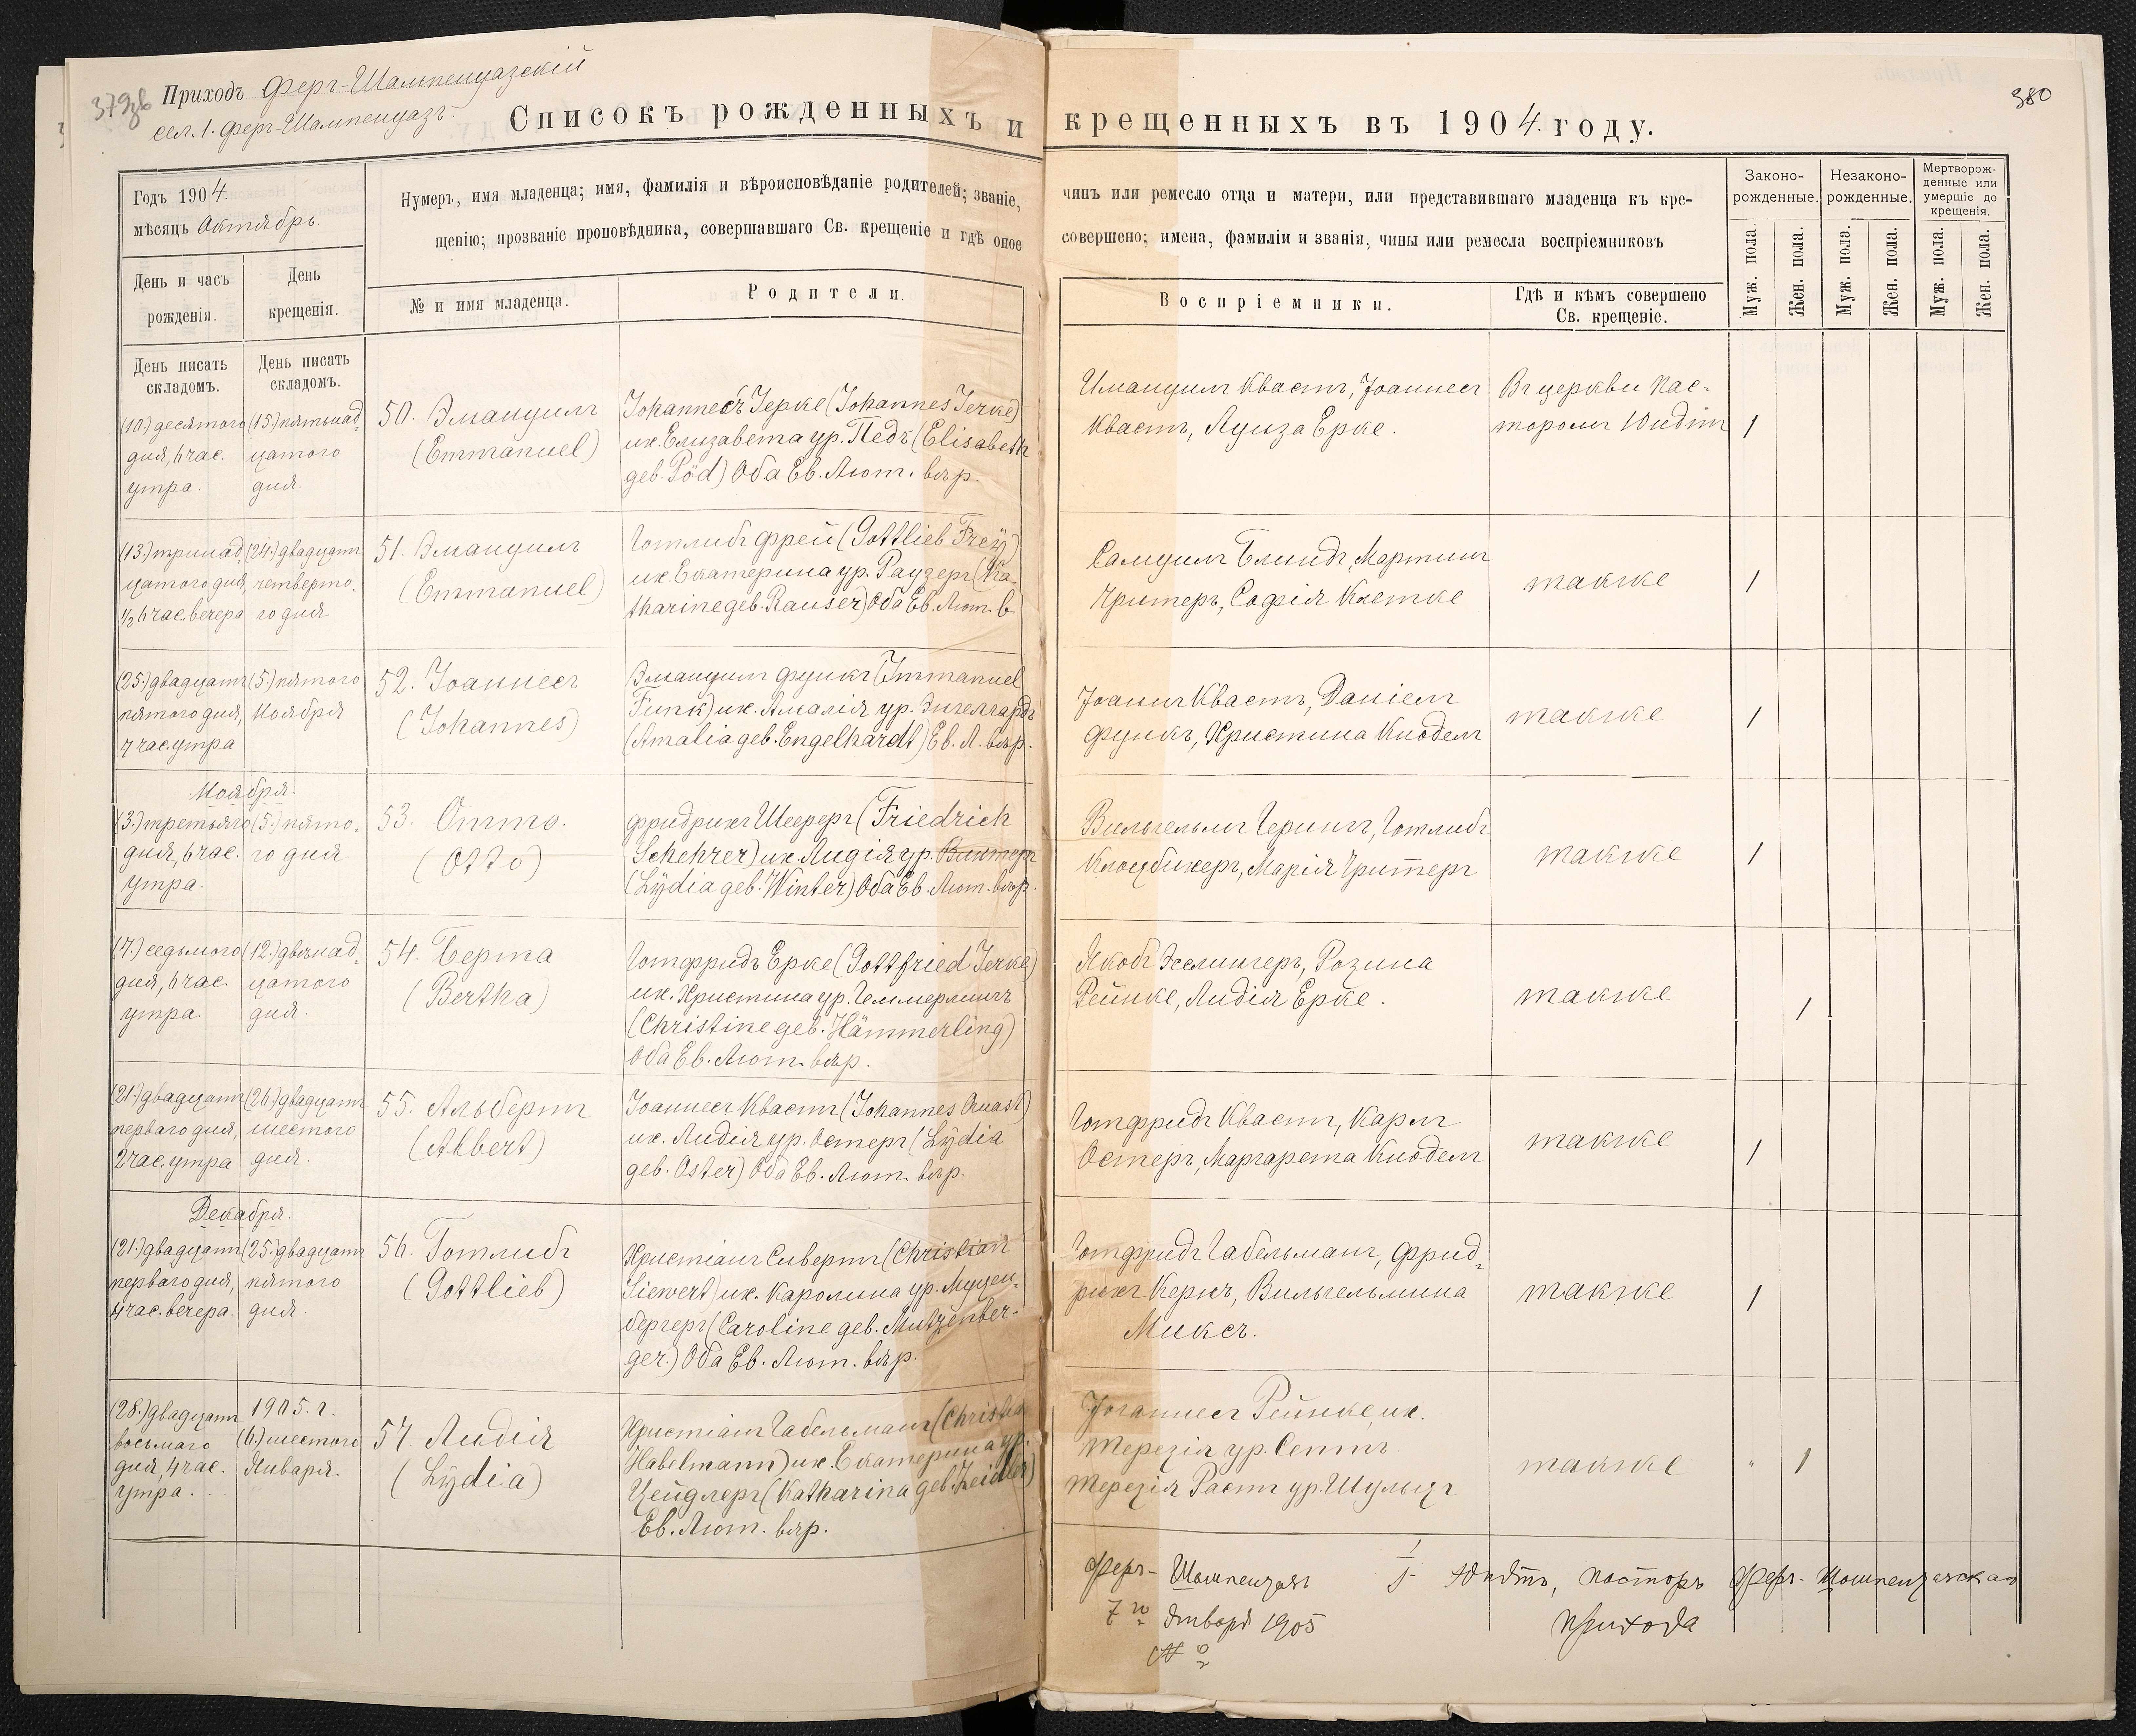 379об
Приходъ Фершъ-Шампенуазскій
сел. 1. Фершъ-Шампенуазъ.
Списокъ рожденныхъ и крещенныхъ въ 1904. году.
380
Годъ 1904.
мѣсяцъ Октябрь
Нумеръ, имя младенца; имя, фамилія и вѣроисповѣданіе родителей; званіе, чинъ или ремесло отца и матери, или представившаго младенца къ кре-
щенію; прозваніе проповѣдника, совершавшаго Св. крещеніе и гдѣ оное совершено; имена, фамиліи и званія, чины или ремесла воспріемниковъ
Законо-
рожденные.
Незаконо-
рожденные.
Мертворож-
денные или
умершіе до
крещенія.
День и часъ
рожденія.
День
крещенія.
№ и имя младенца.
Родители.
Воспріемники.
Гдѣ и кѣмъ совершено
Св. крещеніе.
Муж. пола.
Жен. пола.
Муж. пола.
Жен. пола.
Муж. пола.
Жен. пола.
День писать
складомъ.
День писать
складомъ.
(10.) десятого
дня, 6 час.
утра.
(15.) пятьнад-
цатого
дня.
50. Эмануилъ
(Emmanuel)
Iоhannесъ Iерке (Johannes Jerke)
иж. Елизавета ур. Педъ (Elisabeth
geb. Pöd) Оба Ев. Лют. вѣр.
Имануилъ Квастъ, Iоаннесъ
Квастъ, Луиза Ерке.
Въ церкви пас-
торомъ Юидтъ
1
(13.) тринад-
цатого дня,
1/2 6 час. вечера
(24.) двадцать
четверто-
го дня
51. Эмануилъ
(Emmanuel)
Готлибъ Фрей (Gottlieb Freÿ)
иж. Екатерина ур. Раузеръ (Ka-
tharine geb. Rauser) Оба Ев. Лют. в.
Самуилъ Блиндъ, Мартинъ
Критеръ, София Клетке
также
1
(25.) двадцать
пятого дня,
7 час. утра
(5.) пятого
Ноября
52. Iоаннесъ
(Johannes)
Эмануилъ Функъ (Immanuel
Funk) иж. Амалія ур. Энгелгардъ
(Amalia geb. Engelhardt) Ев. Л. вѣр.
Iоаннъ Квастъ, Даніелъ
Функъ, Христина Кнодель
также
1
Ноября.
(3.) третьяго
дня, 6 час.
утра.
(5.) пято-
го дня
53. Отто.
(Otto)
Фридрихъ Шереръ (Friedrich
Schehrer) иж. Лидія ур. Винтеръ
(Lÿdia geb. Winter) Оба Ев. Лют. вѣр.
Вильгельмъ Герингъ, Готлибъ
Клоцбихеръ, Марія Критеръ
также
1
(7.) седьмого
дня, 6 час.
утра.
(12.) двѣнад-
цатого
дня.
54. Берта
(Bertha)
Готфридъ Ерке (Gottfried Jerke)
иж. Христина ур. Геммерлингъ
(Christine geb. Hämmerling)
Оба Ев. Лют. вѣр.
Якобъ Эслингеръ, Розина
Рейнке, Лидія Ерке.
также
1
(21.) двадцать
перваго дня,
2 час. утра
(26.) двадцать
шестого
дня.
55. Альбертъ
(Albert)
Iоаннесъ Квастъ (Johannes Quast)
иж. Лидія ур. Остеръ (Lÿdia
geb. Oster) Оба Ев. Лют. вѣр.
Готфридъ Квастъ, Карлъ
Остеръ, Маргарета Кнодель
также
1
Декабря.
(21.) двадцать
перваго дня,
4 час. вечера.
(25.) двадцать
пятого
дня.
56. Готлибъ
(Gottlieb)
Христіанъ Сивертъ (Christian
Siewert) иж. Каролина ур. Муцен-
бергеръ (Caroline geb. Mutzenber-
ger.) Оба Ев. Лют. вѣр.
Готфридъ Габельманъ, Фрид-
рихъ Кернъ, Вильгельмина
Миксъ.
также
1
(28.) двадцать
восьмаго
дня, 4 час.
утра.
1905. г.
(6.) шестого
Января.
57. Лидія
(Lÿdia)
Христіанъ Габельманъ (Christian
Habelmann) иж. Екатерина ур.
Цейдлеръ (Katharina geb. Zeidler)
Ев. Лют. вѣр.
Iоганнесъ Рейнке, иж.
Терезія ур. Септъ
Терезія Растъ ур. Шульцъ
также
" 1
Фершъ- Шампенуазъ
Юидтъ, пасторъ Фершъ-Шампенуазскаго
7го Января 1905
прихода
№ 2